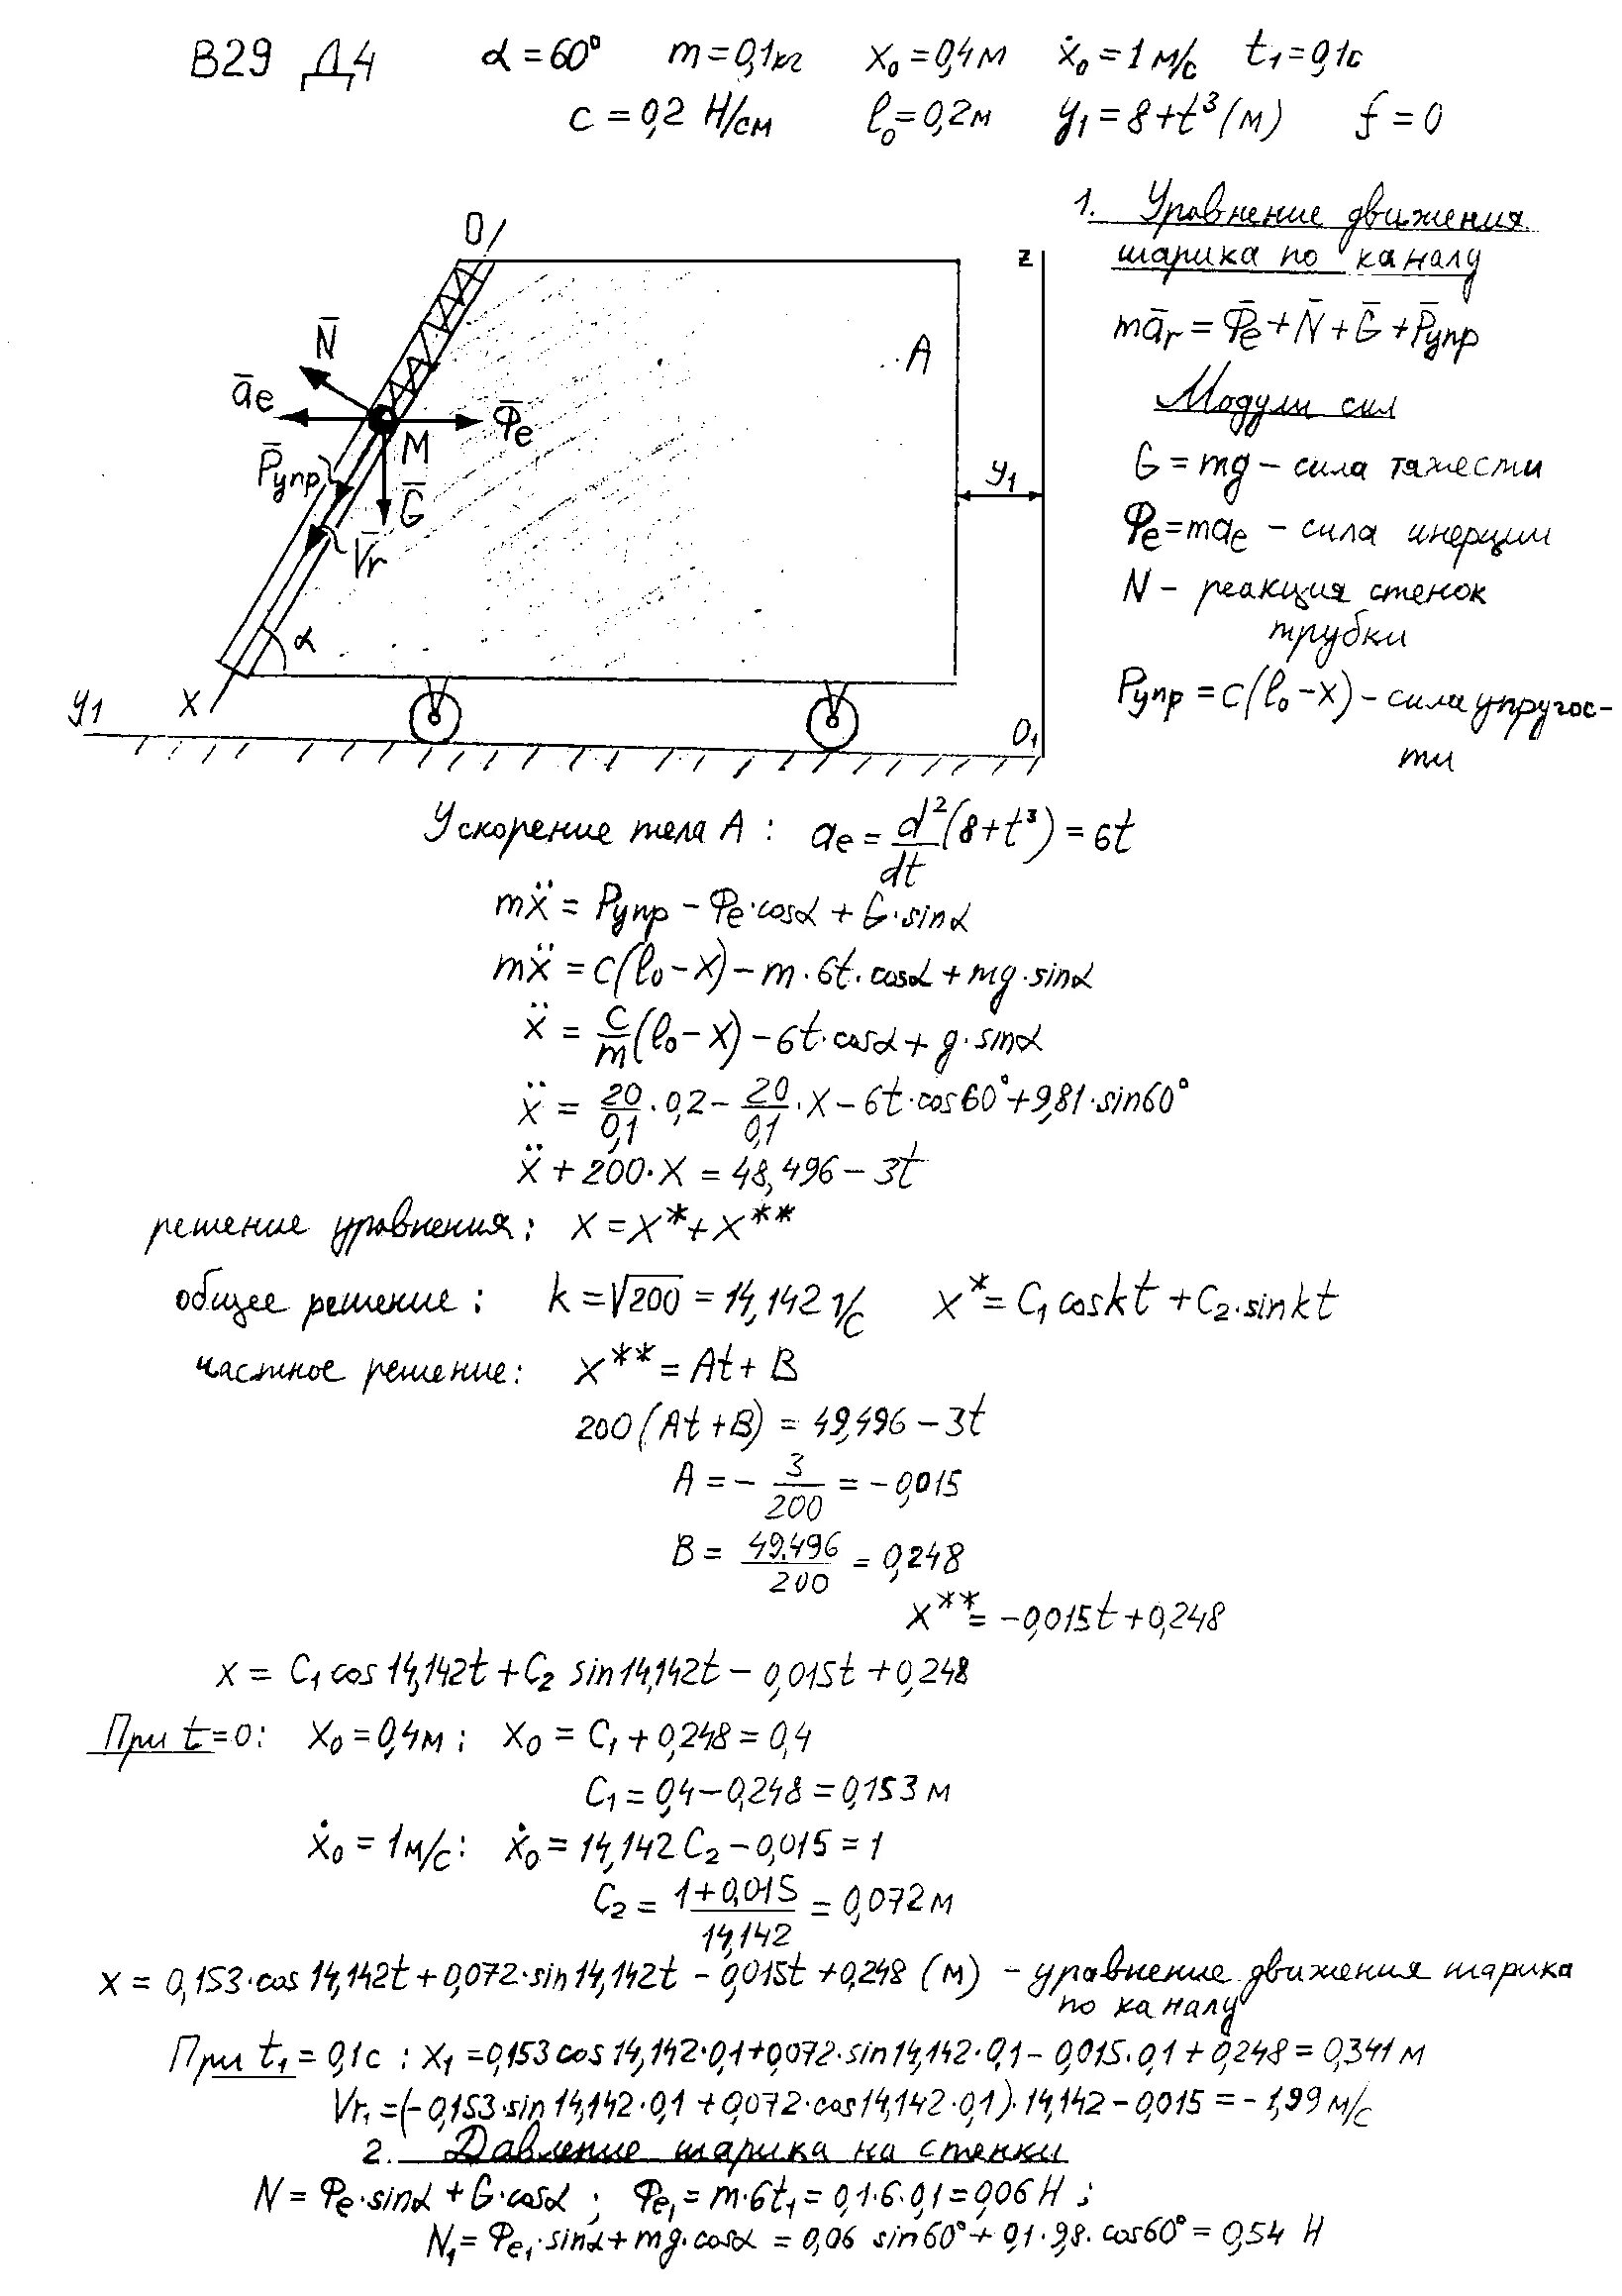 В29 Д4 α = 60° m = 0,1кг x₀ = 0,4м ẋ₀ = 1 м/с t₁ = 0,1с
c = 0,2 Н/см l₀ = 0,2м y₁ = 8+t³(м) f = 0
1. Уравнение движения
шарика по каналу
mār = Φ̄e + N̄ + Ḡ + P̄упр
Модули сил
G = mg – сила тяжести
Φe = mae – сила инерции
N – реакция стенок
трубки
Pупр = c(l₀ – x) – сила упругос-
ти
O
z
N̄
A
āe
Φ̄e
M
P̄упр
Ḡ
y₁
V̄r
α
x
y₁
O₁
Ускорение тела A : ae = d²/dt (8+t³) = 6t
mẍ = Pупр – Φe·cosα + G·sinα
mẍ = c(l₀ – x) – m·6t·cosα + mg·sinα
ẍ = c/m (l₀ – x) – 6t·cosα + g·sinα
ẍ = 20/0,1 · 0,2 – 20/0,1 · x – 6t·cos60° + 9,81·sin60°
ẍ + 200·x = 48,496 – 3t
решение уравнения: x = x* + x**
общее решение : k = √200 = 14,142 1/с x* = C₁coskt + C₂·sinkt
частное решение: x** = At + B
200(At + B) = 49,496 – 3t
A = – 3/200 = –0,015
B = 49.496/200 = 0,248
x** = –0,015t + 0,248
x = C₁cos14,142t + C₂ sin14,142t – 0,015t + 0,248
При t=0: x₀ = 0,4м ; x₀ = C₁ + 0,248 = 0,4
C₁ = 0,4 – 0,248 = 0,153 м
ẋ₀ = 1м/с : ẋ₀ = 14,142 C₂ – 0,015 = 1
C₂ = 1+0,015/14,142 = 0,072 м
x = 0,153·cos14,142t + 0,072·sin14,142t – 0,015t + 0,248 (м) – уравнение движения шарика
по каналу
При t₁ = 0,1с : x₁ = 0,153cos14,142·0,1+0,072·sin14,142·0,1 – 0,015·0,1 + 0,248 = 0,341 м
Vr₁ = (–0,153·sin14,142·0,1 + 0,072·cos14,142·0,1)·14,142 – 0,015 = –1,99 м/с
2. Давление шарика на стенки
N = Φe·sinα + G·cosα ; Φe₁ = m·6t₁ = 0,1·6·0,1 = 0,06 Н ;
N₁ = Φe₁·sinα + mg·cosα = 0,06 sin60° + 0,1·9,8·cos60° = 0,54 Н